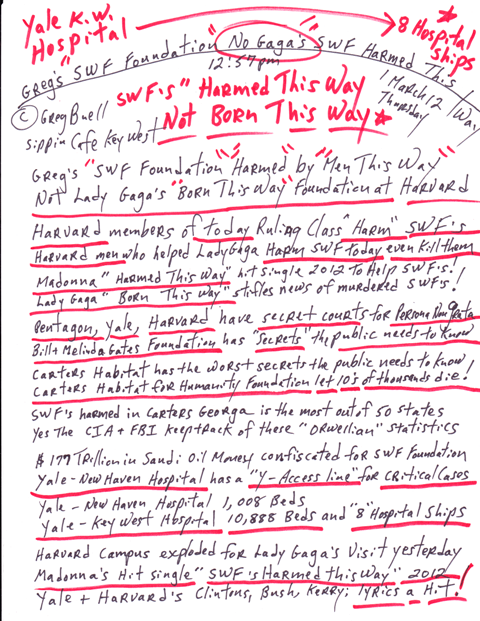 Yale K.W. Hospital → 8 Hospital Ships
Greg's "SWF Foundation" No Gaga's" SWF Harmed This Way
12:57pm
1 March 12
Thursday
© Greg Buell
Sippin Cafe Key West
SWF's" Harmed This Way
Not Born This Way
Greg's "SWF Foundation Harmed by "Men This Way"
Not Lady Gaga's "Born This Way" Foundation at Harvard
Harvard members of today Ruling Class "Harm" SWF's
Harvard men who helped Lady Gaga Harm SWF today even kill them
Madonna "Harmed This Way" hit single 2012 To Help SWF's!
Lady Gaga "Born This Way" stifles news of murdered SWF's!
Pentagon, Yale, Harvard have secret courts for Persona Non Grata
Bill + Melinda Gates Foundation has "Secrets" the public needs to know
Carters Habitat has the worst secrets the public needs to know!
Carters Habitat for Humanity Foundation let 10's of thousands die!
SWF's harmed in Carters Georga is the most out of 50 states
Yes the CIA + FBI keep track of these "Orwellian" statistics
$ 177 Trillion in Saudi Oil Money confiscated for SWF Foundation
Yale-New Haven Hospital has a "Y-Access line" for Critical Cases
Yale - New Haven Hospital 1,008 Beds
Yale - Key West Hospital 10,888 Beds and "8" Hospital Ships
Harvard Campus exploded for Lady Gaga's Visit yesterday
Madonna's Hit single "SWF's Harmed this Way" 2012
Yale + Harvard's Clintons, Bush, Kerry; lyrics a Hit!